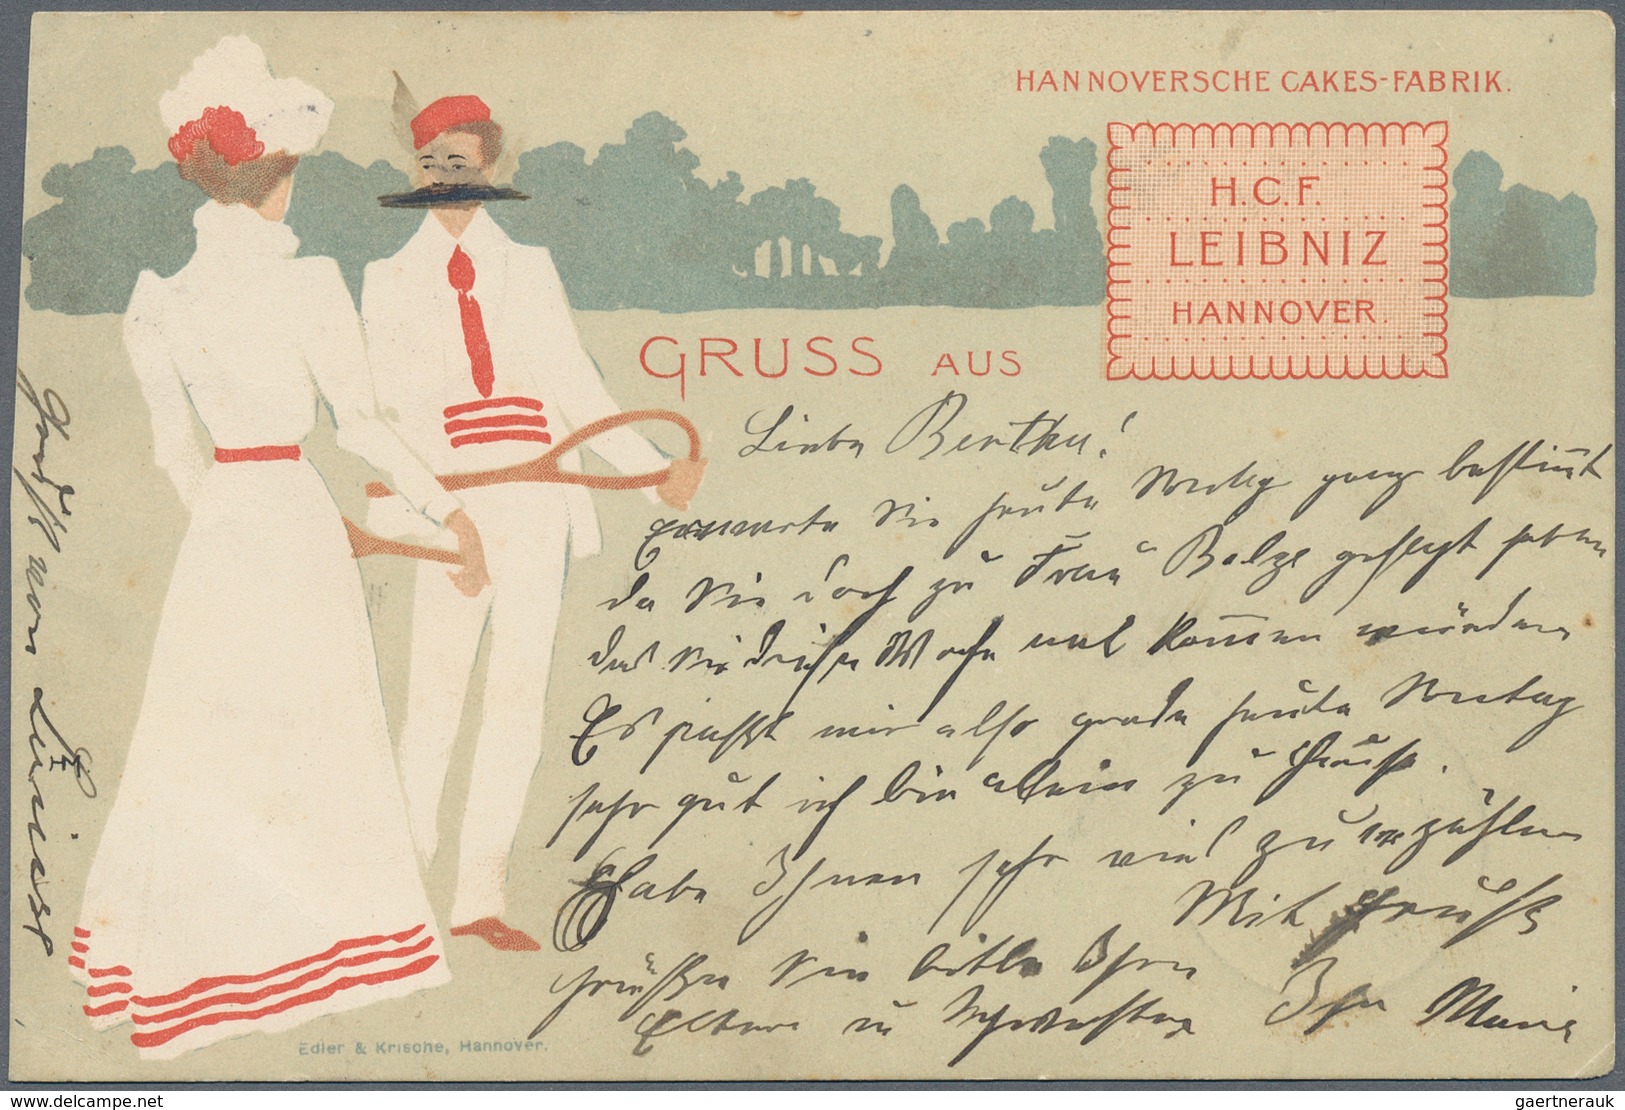 HANNOVERSCHE CAKES-FABRIK.
H.C.F.
LEIBNIZ
HANNOVER.
GRUSS AUS
Liebe Bertha!
Erwarte Sie heute ganz bestimmt
da Sie doch zu Frau Bolze gesagt haben
das Sie diese Woche mal kommen würden
Es paßt mir also grade heute Montag
sehr gut ich bin allein zu Hause.
Habe Ihnen sehr viel zu erzählen
Mit Gruß
grüßen Sie bitte Ihre
Eltern u Schwester Ihre Marie
Gruß von Luise
Edler & Krische, Hannover.
www.delcampe.net
gaertnerauk